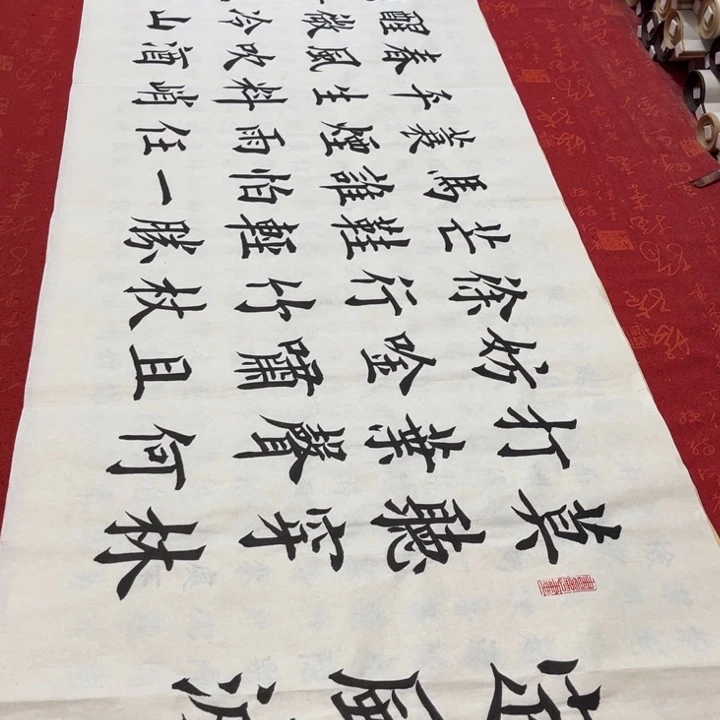 莫聽穿林
打葉聲何
妨唫嘯且
徐行竹杖
芒鞋輕勝
馬誰怕一
蓑煙雨任
平生料峭
春風吹酒
醒微冷山